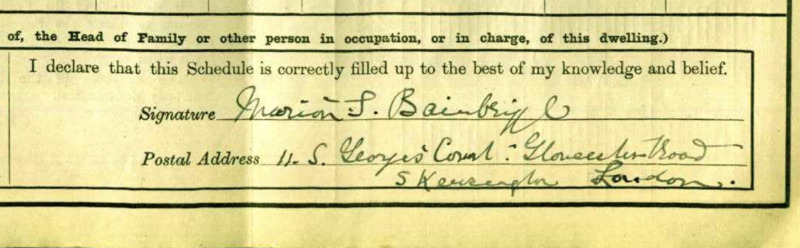 of, the Head of Family or other person in occupation, or in charge, of this dwelling.)
I declare that this Schedule is correctly filled up to the best of my knowledge and belief.
Signature Marion S. Bainbrigge
Postal Address 11. S. Georges' Court. Gloucester Road
S Kensington London.